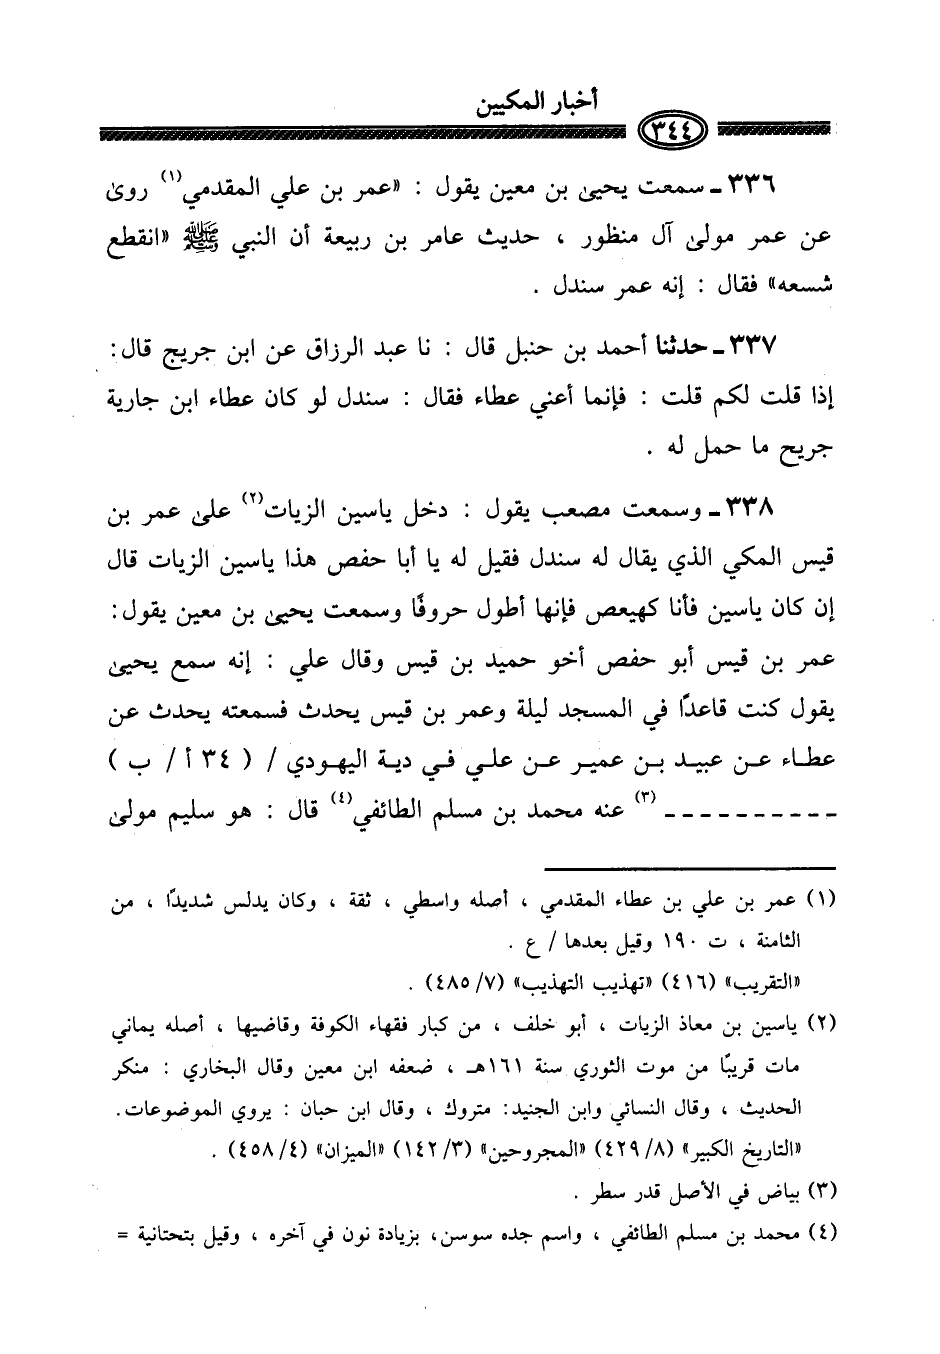 أخبار المكيين
٣٤٤
٣٣٦ـ سمعت يحيىٰ بن معين يقول : «عمر بن علي المقدمي(١) روىٰ
عن عمر مولىٰ آل منظور ، حديث عامر بن ربيعة أن النبي ﷺ «انقطع
شسعه» فقال : إنه عمر سندل .
٣٣٧ـ حدثنا أحمد بن حنبل قال : نا عبد الرزاق عن ابن جريج قال :
إذا قلت لكم قلت : فإنما أعني عطاء فقال : سندل لو كان عطاء ابن جارية
جريح ما حمل له .
٣٣٨ـ وسمعت مصعب يقول : دخل ياسين الزيات(٢) علىٰ عمر بن
قيس المكي الذي يقال له سندل فقيل له يا أبا حفص هذا ياسين الزيات قال
إن كان ياسين فأنا كهيعص فإنها أطول حروفًا وسمعت يحيىٰ بن معين يقول :
عمر بن قيس أبو حفص أخو حميد بن قيس وقال علي : إنه سمع يحيىٰ
يقول كنت قاعدًا في المسجد ليلة وعمر بن قيس يحدث فسمعته يحدث عن
عطاء عن عبيد بن عمير عن علي في دية اليهودي / ( ٣٤ أ / ب )
ـ ـ ـ ـ ـ ـ ـ ـ ـ ـ (٣) عنه محمد بن مسلم الطائفي(٤) قال : هو سليم مولىٰ
(١) عمر بن علي بن عطاء المقدمي ، أصله واسطي ، ثقة ، وكان يدلس شديدًا ، من
الثامنة ، ت ١٩٠ وقيل بعدها / ع .
«التقريب» (٤١٦) «تهذيب التهذيب» (٧/ ٤٨٥) .
(٢) ياسين بن معاذ الزيات ، أبو خلف ، من كبار فقهاء الكوفة وقاضيها ، أصله يماني
مات قريبًا من موت الثوري سنة ١٦١هـ ، ضعفه ابن معين وقال البخاري : منكر
الحديث ، وقال النسائي وابن الجنيد: متروك ، وقال ابن حبان : يروي الموضوعات.
«التاريخ الكبير» (٨/ ٤٢٩) «المجروحين» (٣/ ١٤٢) «الميزان» (٤/ ٤٥٨) .
(٣) بياض في الأصل قدر سطر .
(٤) محمد بن مسلم الطائفي ، واسم جده سوسن، بزيادة نون في آخره ، وقيل بتحتانية =